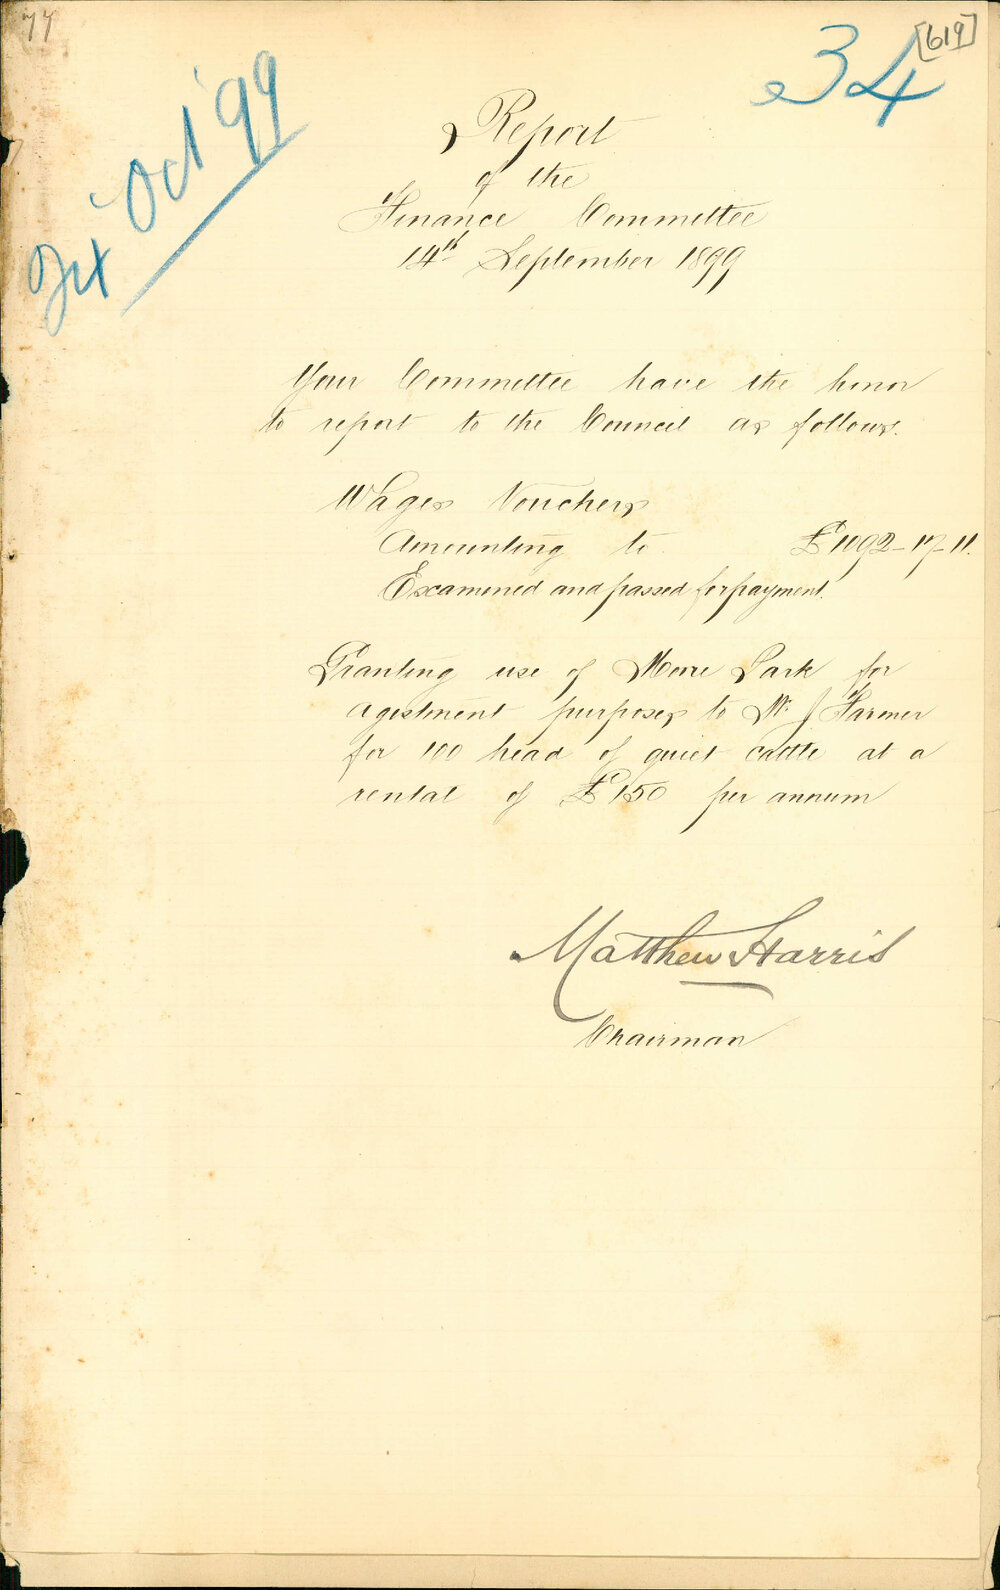 77
[619]
34
Oct '99
Report
of the
Finance Committee
14th September 1899
Your Committee have the honor
to report to the Council as follows.
Wages Vouchers
Amounting to £1192-17-11.
Examined and passed for payment.
Granting use of Moore Park for
agistment purposes to W. J Farmer
for 100 head of quiet cattle at a
rental of £150 per annum
Matthew Harris
Chairman